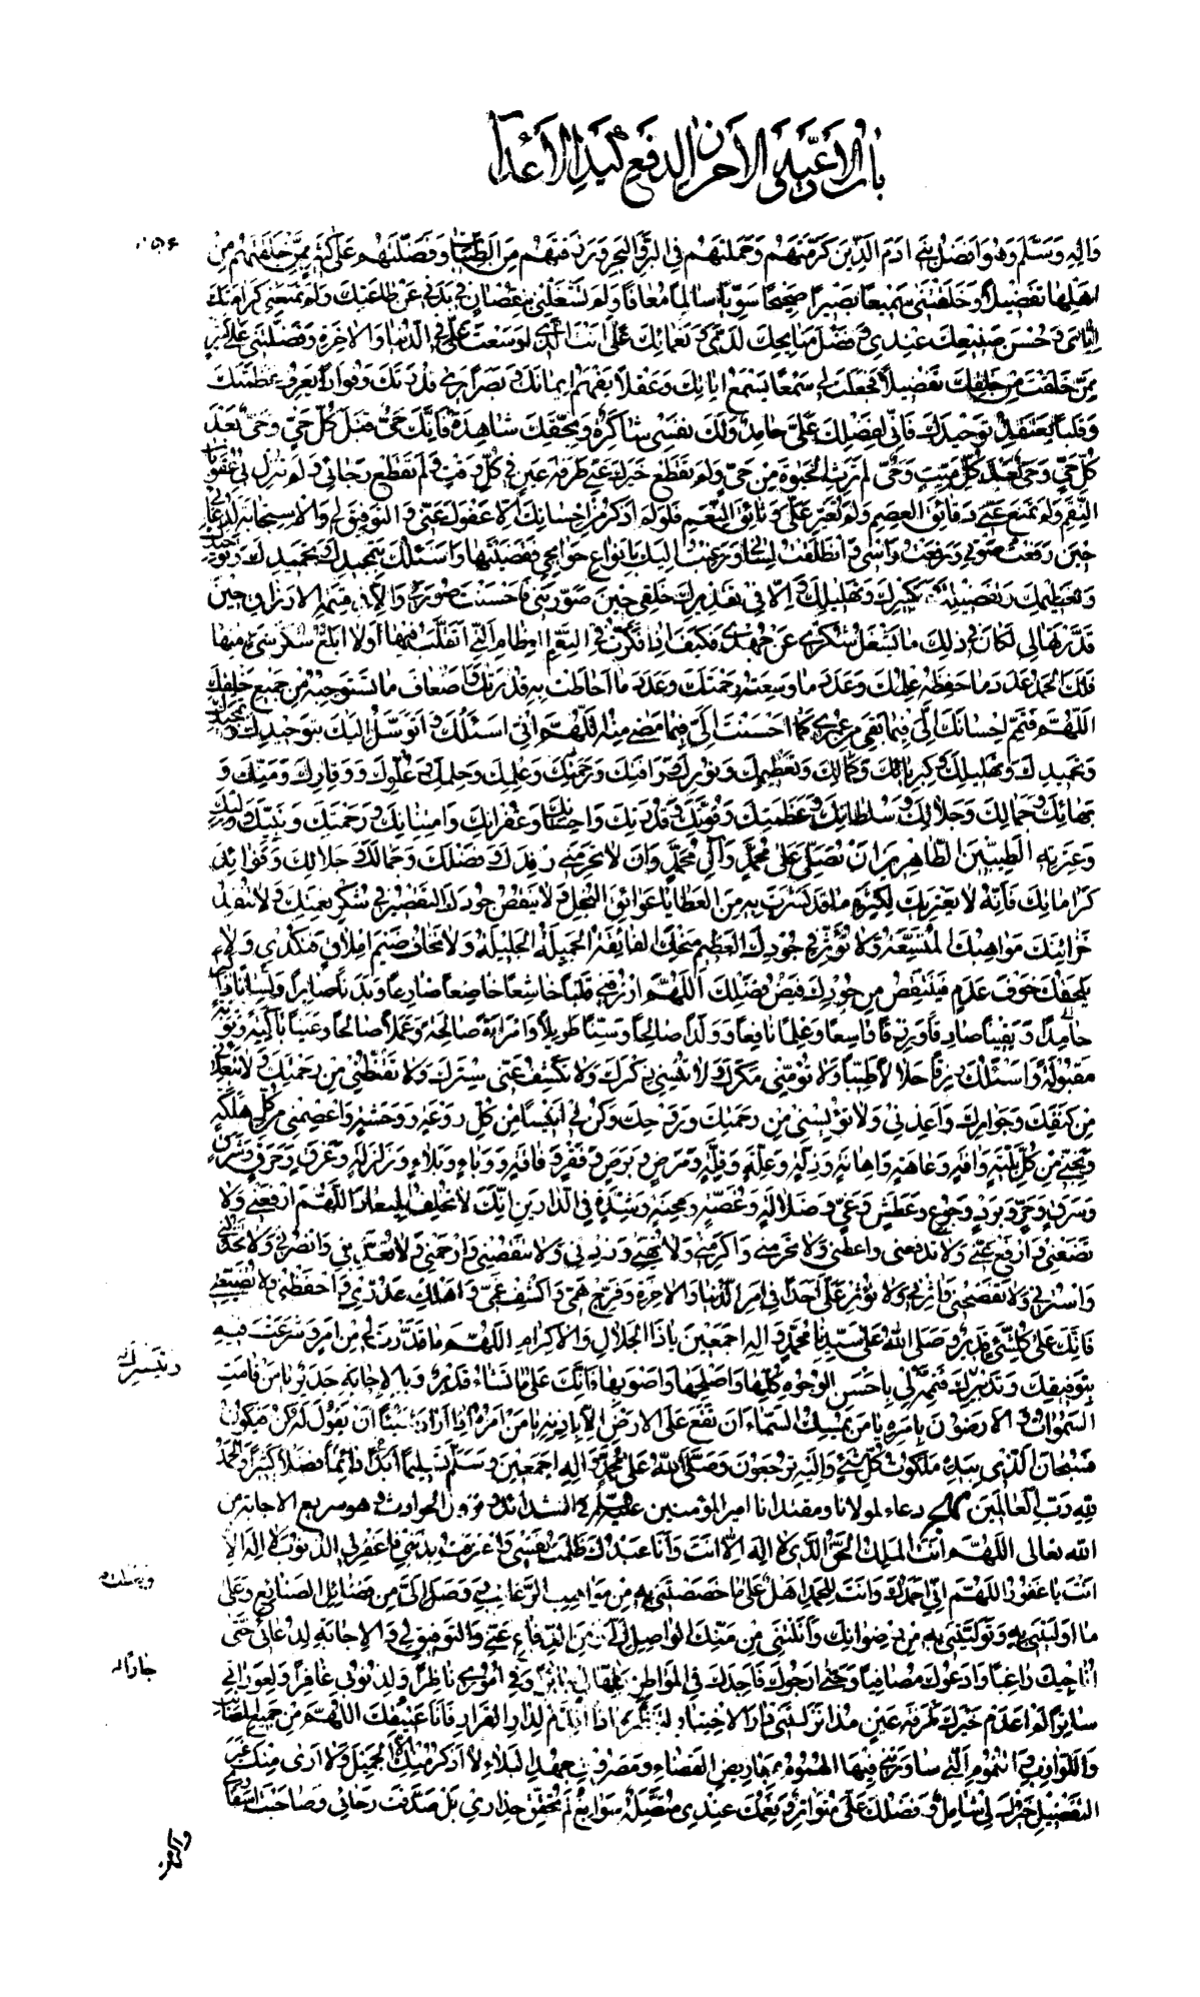 باب الادعية والاحراز لدفع كيد الاعداء
وَالِهِ وَسَلَّمَ وَهُوَ اَفْضَلُ بَنِي ادَمَ الَّذِينَ كَرَّمْتَهُمْ وَحَمَلْتَهُمْ فِي الْبَرِّ وَالْبَحْرِ وَرَزَقْتَهُمْ مِنَ الطَّيِّبَاتِ وَفَضَّلْتَهُمْ عَلى كَثِيرٍ مِمَّنْ خَلَقْتَهُمْ مِنْ
اَهْلِهَا تَفْضِيلاً وَخَلَقْتَنِي سَمِيعاً بَصِيراً صَحِيحاً سَوِيّاً سَالِماً مُعَافاً وَلَمْ تَشْغَلْنِي بِنُقْصَانٍ فِي بَدَنِي عَنْ طَاعَتِكَ وَلَمْ تَمْنَعْنِي كَرَامَتَكَ
اِيَّايَ وَحُسْنَ صَنِيعِكَ عِنْدِي وَفَضْلَ مَنَايِحِكَ لَدَيَّ وَنَعْمَائِكَ عَلَيَّ اَنْتَ الَّذِي اَوْسَعْتَ عَلَيَّ فِي الدُّنْيَا وَالاخِرَةِ وَفَضَّلْتَنِي عَلى كَثِيرٍ
مِمَّنْ خَلَقْتَ مِنْ خَلْقِكَ تَفْضِيلاً فَجَعَلْتَ لِي سَمْعاً يَسْمَعُ ايَاتِكَ وَعَقْلاً يَفْهَمُ اِيمَانَكَ وَبَصَراً يَرى قُدْرَتَكَ وَفُؤَاداً يَعْرِفُ عَظَمَتَكَ
وَقَلْباً يَعْتَقِدُ تَوْحِيدَكَ فَاِنِّي لِفَضْلِكَ عَلَيَّ حَامِدٌ وَلَكَ نَفْسِي شَاكِرَةٌ وَبِحَقِّكَ شَاهِدَةٌ فَاِنَّكَ حَيٌّ قَبْلَ كُلِّ حَيٍّ وَحَيٌّ بَعْدَ
كُلِّ حَيٍّ وَحَيٌّ بَعْدَ كُلِّ مَيِّتٍ وَحَيٌّ لَمْ تَرِثِ الْحَيوةَ مِنْ حَيٍّ وَلَمْ تَقْطَعْ خَيْرَكَ عَنِّي طَرْفَةَ عَيْنٍ فِي كُلِّ وَقْتٍ وَلَمْ تَقْطَعْ رَجَائِي وَلَمْ تُنْزِلْ بِي عُقُوبَاتِ
النِّقَمِ وَلَمْ تَمْنَعْ عَنِّي دَقَائِقَ الْعِصَمِ وَلَمْ تُغَيِّرْ عَلَيَّ وَثَائِقَ النِّعَمِ فَلَوْ لَمْ اَذْكُرْ مِنْ اِحْسَانِكَ اِلاَّ عَفْوَكَ عَنِّي وَالتَّوْفِيقَ لِي وَالاِسْتِجَابَةَ لِدُعَائِي
حِينَ رَفَعْتُ صَوْتِي وَرَفَعْتُ رَاْسِي وَانْطَلَقَتْ لِسَانِي وَرَغِبْتُ اِلَيْكَ بِاَنْوَاعِ حَوَائِجِي فَقَضَيْتَهَا وَاَسْئَلُكَ بِتَمْجِيدِكَ وَتَحْمِيدِكَ وَتَوْحِيدِكَ
وَتَعْظِيمِكَ وَتَفْضِيلِكَ وَتَكْبِيرِكَ وَتَهْلِيلِكَ وَاِلاَّ فِي تَقْدِيرِكَ خَلْقِي حِينَ صَوَّرْتَنِي فَاَحْسَنْتَ صُورَتِي وَاِلاَّ فِي قِسْمَةِ الاَرْزَاقِ حِينَ
قَدَّرْتَهَا لِي لَكَانَ فِي ذلِكَ مَا يَشْغَلُ شُكْرِي عَنْ جُهْدِي فَكَيْفَ اِذَا فَكَّرْتُ فِي النِّعَمِ الْعِظَامِ الَّتِي اَتَقَلَّبُ فِيهَا وَلاَ اَبْلُغُ شُكْرَ شَيْءٍ مِنْهَا
فَلَكَ الْحَمْدُ عَدَدَ مَا حَفِظَهُ عِلْمُكَ وَعَدَدَ مَا وَسِعَتْهُ رَحْمَتُكَ وَعَدَدَ مَا اَحَاطَتْ بِهِ قُدْرَتُكَ وَاَضْعَافَ مَا تَسْتَوْجِبُهُ مِنْ جَمِيعِ خَلْقِكَ
اَللّهُمَّ فَتَمِّمْ اِحْسَانَكَ اِلَيَّ فِيمَا بَقِيَ مِنْ عُمْرِي كَمَا اَحْسَنْتَ اِلَيَّ فِيمَا مَضى مِنْهُ اَللّهُمَّ اِنِّي اَسْئَلُكَ وَاَتَوَسَّلُ اِلَيْكَ بِتَوْحِيدِكَ وَتَمْجِيدِكَ
وَتَحْمِيدِكَ وَتَهْلِيلِكَ وَكِبْرِيَائِكَ وَكَمَالِكَ وَتَعْظِيمِكَ وَنُورِكَ وَرَاْفَتِكَ وَرَحْمَتِكَ وَعِلْمِكَ وَحِلْمِكَ وَعُلُوِّكَ وَوَقَارِكَ وَمَنِّكَ وَ
بَهَائِكَ وَجَمَالِكَ وَجَلاَلِكَ وَسُلْطَانِكَ وَعَظَمَتِكَ وَقُوَّتِكَ وَقُدْرَتِكَ وَاِحْسَانِكَ وَغُفْرَانِكَ وَامْتِنَانِكَ وَرَحْمَتِكَ وَنَبِيِّكَ وَوَلِيِّكَ
وَعِتْرَتِهِ الطَّيِّبِينَ الطَّاهِرِينَ اَنْ تُصَلِّيَ عَلى مُحَمَّدٍ وَآلِ مُحَمَّدٍ وَاَنْ لاَ تَحْرِمَنِي رِفْدَكَ وَفَضْلَكَ وَجَمَالَكَ وَجَلاَلَكَ وَفَوَائِدَ
كَرَامَاتِكَ فَاِنَّهُ لاَ يَعْتَرِيكَ لِكَثْرَةِ مَا قَدْ نَشَرْتَ بِهِ مِنَ الْعَطَايَا عَوَائِقُ الْبُخْلِ وَلاَ يَنْقُصُ جُودَكَ التَّقْصِيرُ فِي شُكْرِ نِعْمَتِكَ وَلاَ تُنْفِدُ
خَزَائِنَكَ مَوَاهِبُكَ الْمُتَّسِعَةُ وَلاَ تُؤَثِّرُ فِي جُودِكَ الْعَظِيمِ مِنَحُكَ الْفَائِقَةُ الْجَمِيلَةُ الْجَلِيلَةُ وَلاَ تَخَافُ ضَيْمَ اِمْلاَقٍ فَتُكْدِي وَلاَ
يَلْحَقُكَ خَوْفُ عَدَمٍ فَيَنْقُصَ مِنْ جُودِكَ فَيْضُ فَضْلِكَ اَللّهُمَّ ارْزُقْنِي قَلْباً خَاشِعاً خَاضِعاً ضَارِعاً وَبَدَناً صَابِراً وَلِسَاناً ذَاكِراً
حَامِداً وَيَقِيناً صَادِقاً وَرِزْقاً وَاسِعاً وَعِلْماً نَافِعاً وَوَلَداً صَالِحاً وَسِنّاً طَوِيلاً وَامْرَاَةً صَالِحَةً وَعَمَلاً صَالِحاً وَعَيْناً بَاكِيَةً وَتَوْبَةً
مَقْبُولَةً وَاَسْئَلُكَ رِزْقاً حَلاَلاً طَيِّباً وَلاَ تُؤْمِنِّي مَكْرَكَ وَلاَ تُنْسِنِي ذِكْرَكَ وَلاَ تَكْشِفْ عَنِّي سِتْرَكَ وَلاَ تُقَنِّطْنِي مِنْ رَحْمَتِكَ وَلاَ تُبْعِدْنِي
مِنْ كَنَفِكَ وَجِوَارِكَ وَاَعِذْنِي وَلاَ تُؤْيِسْنِي مِنْ رَحْمَتِكَ وَرَوْحِكَ وَكُنْ لِي اَنِيساً مِنْ كُلِّ رَوْعَةٍ وَوَحْشَةٍ وَاعْصِمْنِي مِنْ كُلِّ هَلَكَةٍ
وَنَجِّنِي مِنْ كُلِّ بَلِيَّةٍ وَافَةٍ وَعَاهَةٍ وَاِهَانَةٍ وَذِلَّةٍ وَعِلَّةٍ وَقِلَّةٍ وَمَرَضٍ وَبَرَصٍ وَفَقْرٍ وَفَاقَةٍ وَوَبَاءٍ وَبَلاَءٍ وَزَلْزَلَةٍ وَغَرَقٍ وَحَرَقٍ وَشَرَقٍ
وَسَرَقٍ وَحَرٍّ وَبَرْدٍ وَجُوعٍ وَعَطَشٍ وَغَيٍّ وَضَلاَلَةٍ وَغُصَّةٍ وَمِحْنَةٍ وَشِدَّةٍ فِي الدَّارَيْنِ اِنَّكَ لاَ تُخْلِفُ الْمِيعَادَ اَللّهُمَّ ارْفَعْنِي وَلاَ
تَضَعْنِي وَادْفَعْ عَنِّي وَلاَ تَدْفَعْنِي وَاَعْطِنِي وَلاَ تَحْرِمْنِي وَاَكْرِمْنِي وَلاَ تُهِنِّي وَزِدْنِي وَلاَ تَنْقُصْنِي وَارْحَمْنِي وَلاَ تُعَذِّبْنِي وَانْصُرْنِي وَلاَ تَخْذُلْنِي
وَاسْتُرْنِي وَلاَ تَفْضَحْنِي وَاثِرْنِي وَلاَ تُؤْثِرْ عَلَيَّ اَحَداً فِي اَمْرِ الدُّنْيَا وَالاخِرَةِ وَفَرِّجْ هَمِّي وَاكْشِفْ غَمِّي وَاَهْلِكْ عَدُوِّي وَاحْفَظْنِي وَلاَ تُضَيِّعْنِي
فَاِنَّكَ عَلى كُلِّ شَيْءٍ قَدِيرٌ وَصَلَّى اللّهُ عَلى سَيِّدِنَا مُحَمَّدٍ وَالِهِ اَجْمَعِينَ يَا ذَا الْجَلاَلِ وَالاِكْرَامِ اَللّهُمَّ مَا قَدَّرْتَ لِي مِنْ اَمْرٍ وَشَرَعْتُ فِيهِ
وتيسيرك
بِتَوْفِيقِكَ وَتَدْبِيرِكَ فَتَمِّمْهُ لِي بِاَحْسَنِ الْوُجُوهِ كُلِّهَا وَاَصْلَحِهَا وَاَصْوَبِهَا فَاِنَّكَ عَلى مَا تَشَاءُ قَدِيرٌ وَبِالاِجَابَةِ جَدِيرٌ يَا مَنْ قَامَتِ
السَّموَاتُ وَالاَرَضُونَ بِاَمْرِهِ يَا مَنْ يُمْسِكُ السَّمَاءَ اَنْ تَقَعَ عَلَى الاَرْضِ اِلاَّ بِاِذْنِهِ يَا مَنْ اَمْرُهُ اِذَا اَرَادَ شَيْئاً اَنْ يَقُولَ لَهُ كُنْ فَيَكُونُ
فَسُبْحَانَ الَّذِي بِيَدِهِ مَلَكُوتُ كُلِّ شَيْءٍ وَاِلَيْهِ تُرْجَعُونَ وَصَلَّى اللّهُ عَلى مُحَمَّدٍ وَالِهِ اَجْمَعِينَ وَسَلَّمَ تَسْلِيماً اَبَداً دَائِماً فَضْلاً كَثِيراً وَالْحَمْدُ
لِلّهِ رَبِّ الْعَالَمِينَ دعاء لمولانا ومقتدانا امير المؤمنين عليه السلام في الشدائد ونزول الحوادث وهو سريع الاجابة من
الله تعالى اَللّهُمَّ اَنْتَ الْمَلِكُ الْحَقُّ الَّذِي لاَ اِلهَ اِلاَّ اَنْتَ وَاَنَا عَبْدُكَ ظَلَمْتُ نَفْسِي وَاعْتَرَفْتُ بِذَنْبِي فَاغْفِرْ لِي الذُّنُوبَ لاَ اِلهَ اِلاَّ
اَنْتَ يَا غَفُورُ اَللّهُمَّ اِنِّي اَحْمَدُكَ وَاَنْتَ لِلْحَمْدِ اَهْلٌ عَلى مَا خَصَصْتَنِي بِهِ مِنْ مَوَاهِبِ الرَّغَائِبِ وَوَصَلَ اِلَيَّ مِنْ فَضَائِلِ الصَّنَائِعِ وَعَلى
مَا اَوْلَيْتَنِي بِهِ وَتَوَلَّيْتَنِي بِهِ مِنْ رِضْوَانِكَ وَاَنَلْتَنِي مِنْ مَنِّكَ الْوَاصِلِ اِلَيَّ وَمِنَ الدِّفَاعِ عَنِّي وَالتَّوْفِيقِ لِي وَالاِجَابَةِ لِدُعَائِي حَتّى
جارا لي
اُنَاجِيكَ رَاغِباً وَاَدْعُوكَ مُصَافِياً وَحَتّى اَرْجُوكَ فَاَجِدُكَ فِي الْمَوَاطِنِ كُلِّهَا لِي وَفِي اُمُورِي نَاظِراً وَلِذُنُوبِي غَافِراً وَلِعَوْرَاتِي
سَاتِراً لَمْ اَعْدَمْ خَيْرَكَ طَرْفَةَ عَيْنٍ مُذْ اَنْزَلْتَنِي دَارَ الاِخْتِبَارِ لِتَنْظُرَ مَاذَا اُقَدِّمُ لِدَارِ الْقَرَارِ فَاَنَا عَتِيقُكَ اَللّهُمَّ مِنْ جَمِيعِ الْمَصَائِبِ
وَاللَّوَازِبِ وَالْغُمُومِ الَّتِي سَاوَرَتْنِي فِيهَا الْهُمُومُ بِمَعَارِيضِ الْقَضَاءِ وَمَصْرُوفِ جُهْدِ الْبَلاَءِ لاَ اَذْكُرُ مِنْكَ اِلاَّ الْجَمِيلَ وَلاَ اَرى مِنْكَ غَيْرَ
التَّفْضِيلِ خَيْرُكَ لِي شَامِلٌ وَفَضْلُكَ عَلَيَّ مُتَوَاتِرٌ وَنِعَمُكَ عِنْدِي مُتَّصِلَةٌ سَوَابِغُ لَمْ تُحَقِّقْ حِذَارِي بَلْ صَدَّقْتَ رَجَائِي وَصَاحَبْتَ اَسْفَارِي